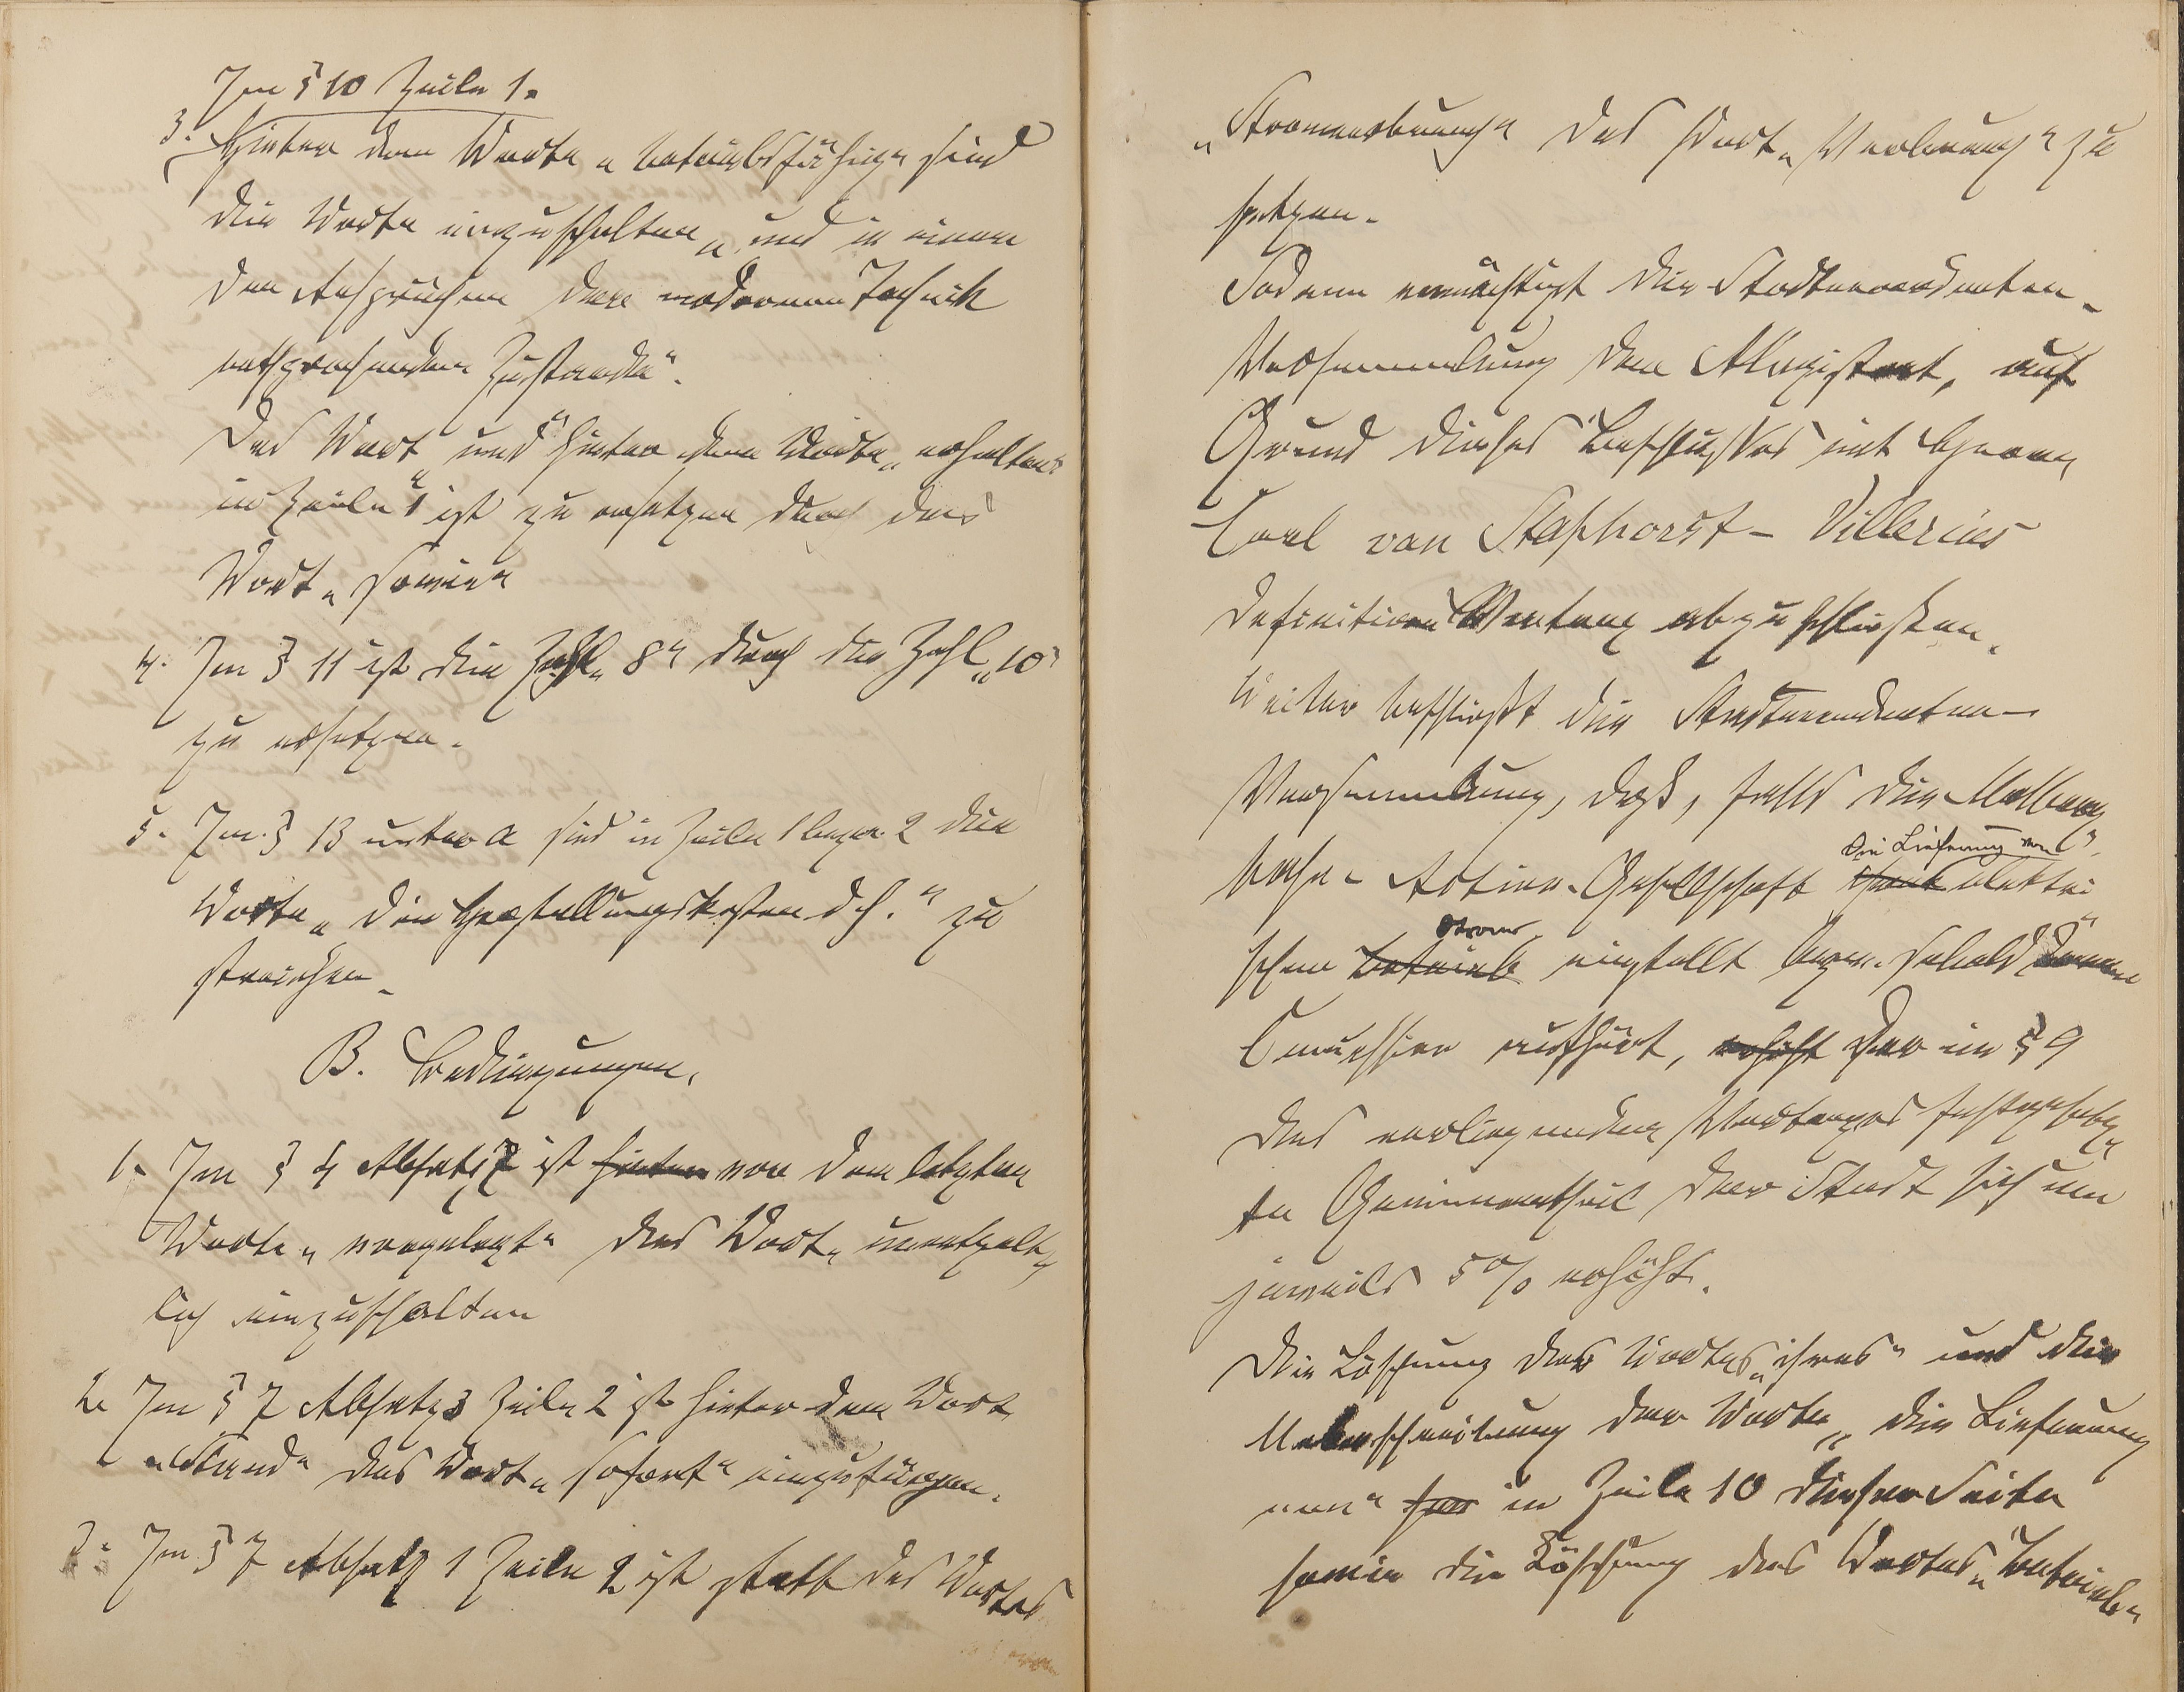 Im § 10 Zeile 1.
3. Hinter dem Worte „betriebsfähig“ sind
die Worte einzuschalten „und in einem
den Ansprüchen der modernen Technik
entsprechenden Zustande“.
Das Wort „und“ hinter dem Worte „erhalten“
in Zeile 1 ist zu ersetzen durch das
Wort „sowie“
4. Im § 11 ist die Zahl „8“ durch die Zahl „10“
zu ersetzen.
5. Im § 13 unter a sind in Zeile 1 bezw. 2 die
Worte „den Herstellungskosten d. h.“ zu
streichen.
B. Bedingungen.
1. Im § 4 Absatz 7 ist hinter vor dem letzten
Worte „vorgelegt“ das Wort „unentgelt-
lich einzuschalten
2. Im § 7 Absatz 3 Zeile 2 ist hinter dem Wort
„Stand“ das Wort „sofort“ einzufügen.
3. Im § 7 Absatz 1 Zeile 2 ist statt des Wortes
„Stromerbrauch“ das Wort „Verbrauch“ zu
setzen.
Sodann ermächtigt die Stadtverordneten-
Versammlung den Magistrat, auf
Grund dieses Beschlusses mit Herrn
Carl van Staphorst-Villerius
definitiven Vertrag abzuschließen.
Weiter beschließt die Stadtverordneten-
Versammlung, daß, falls die Malberg-
die Lieferung von
bahn-Actien-Gesellschaft elektri-
Strom
schen Betrieb einstellt bezw. sobald deren
Concession aufhört, erhöht der im § 9
des vorliegenden Vertrages festgesetz-
te Gewinnantheil der Stadt sich um
jeweils 5% erhöht.
Die Löschung des Wortes „ihres“ und die
Ueberschreibung der Worte „die Lieferung
von“ in Zeile 10 dieser Seite
sowie die Löschung des Wortes „Betrieb“